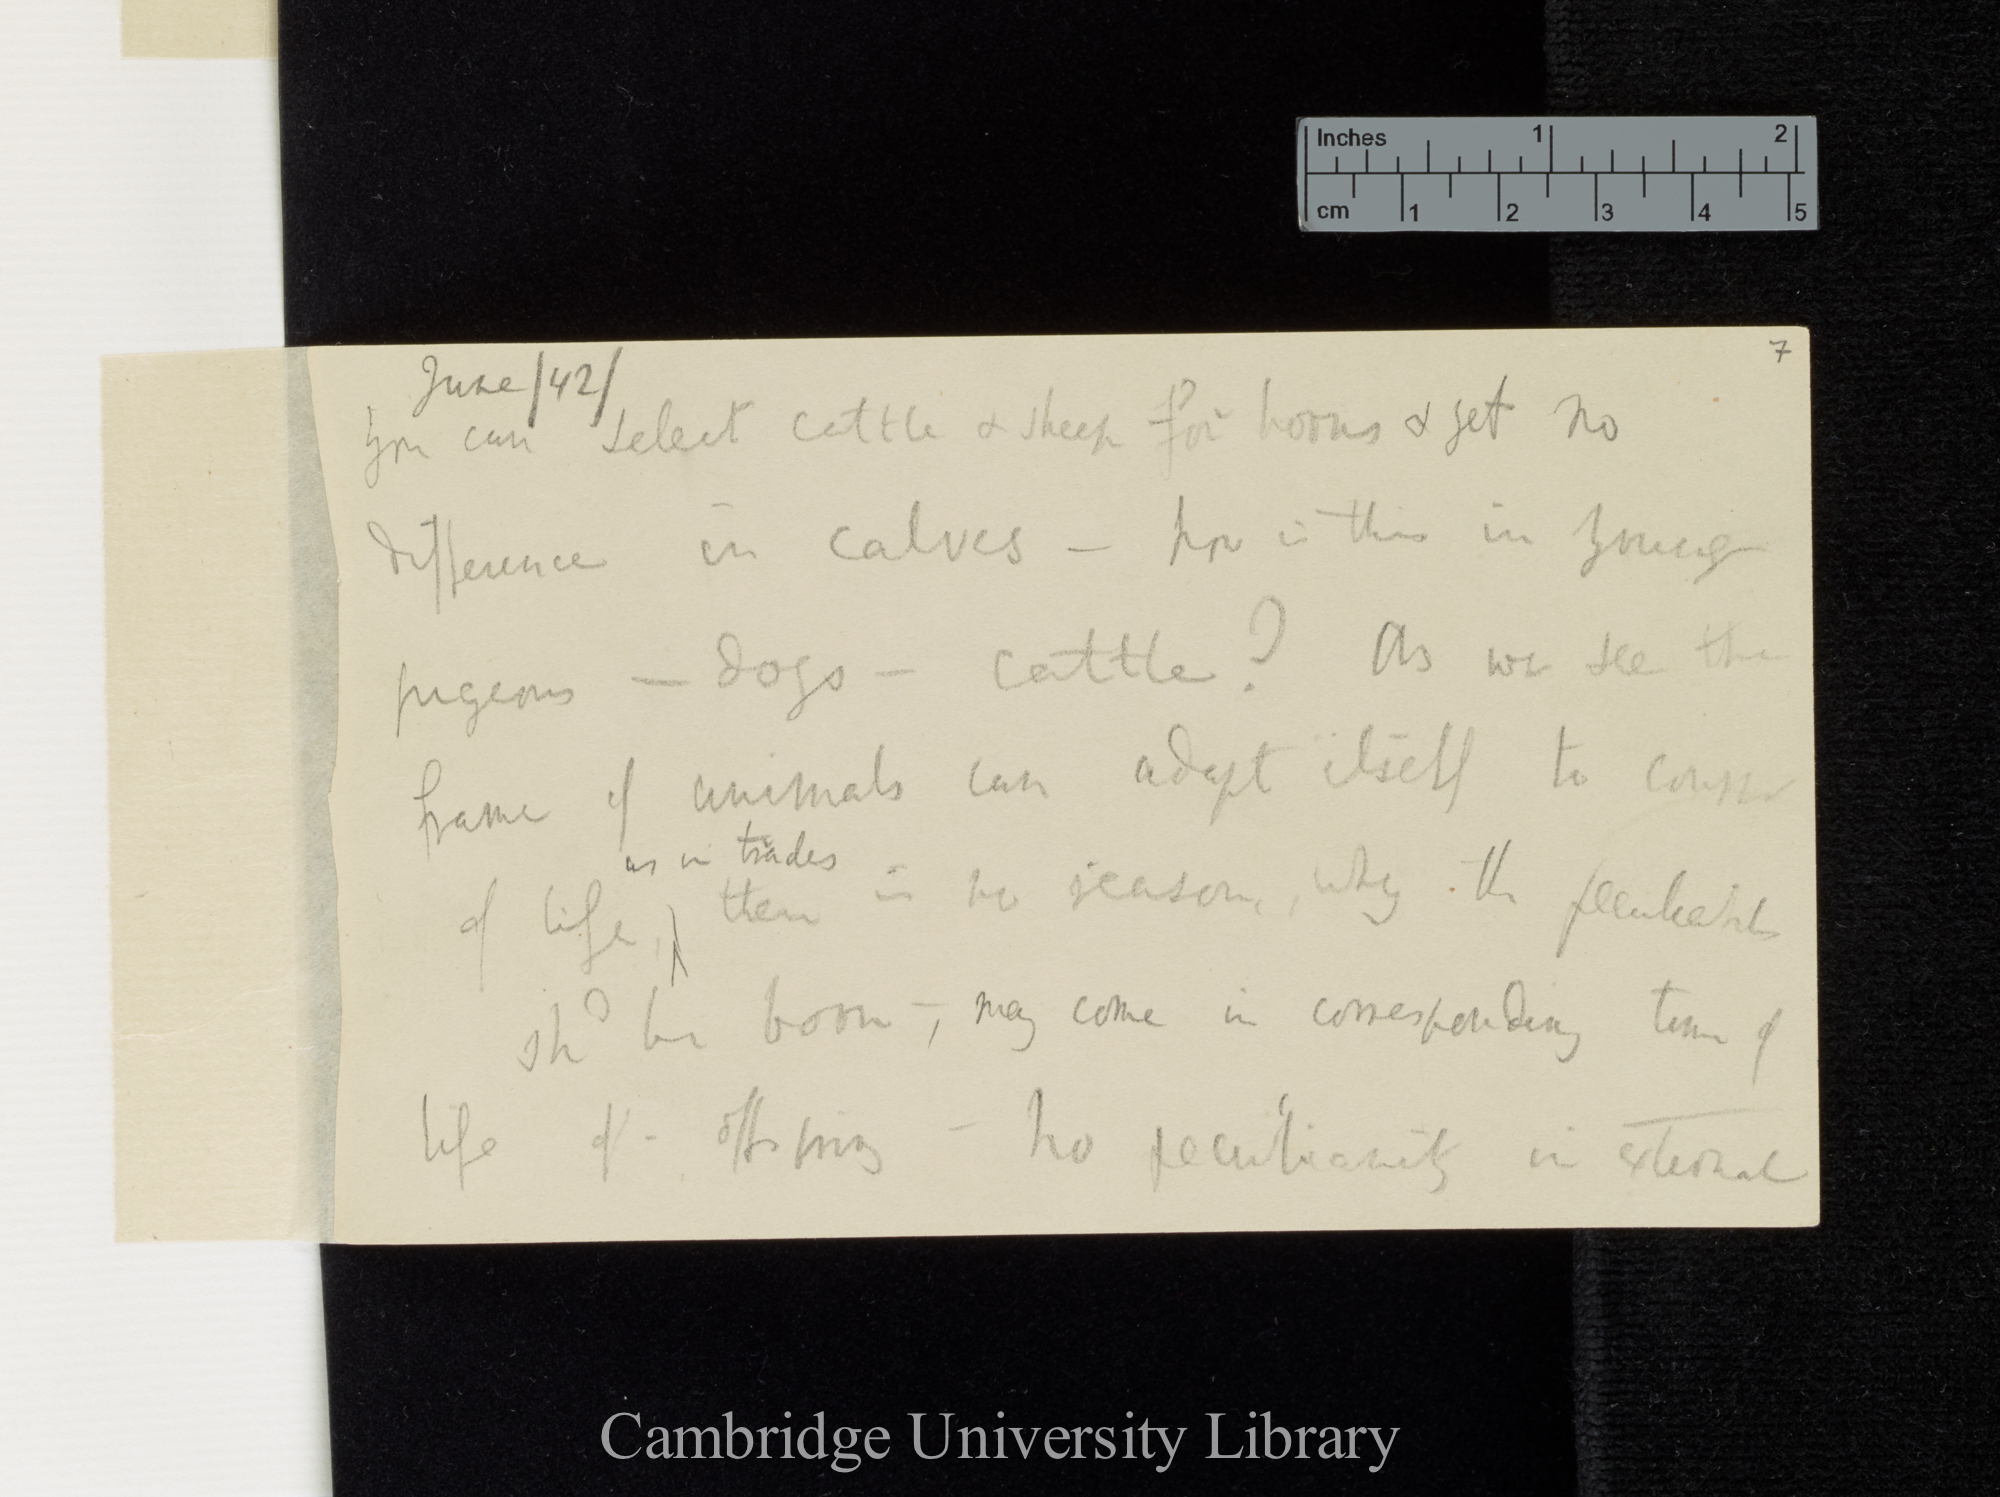 Inches 1 2
cm 1 2 3 4 5
7
June/42/
You can select cattle & sheep for horns & get no
difference in calves — how is this in young
pigeons — dogs — cattle? As we see the
frame of animals can adapt itself to course
as in trades
of life, there is no reason, why the peculiarities
shd be born —, may come in corresponding time of
life of offspring — No peculiarity in external
Cambridge University Library